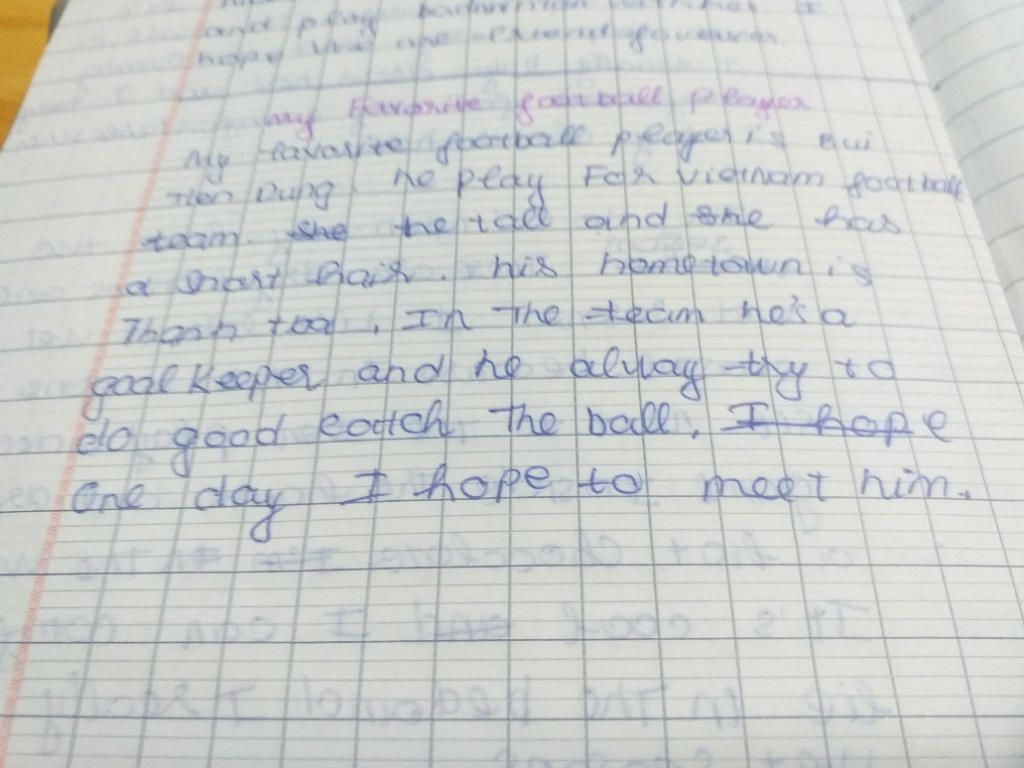 and play
hope
my Favorite football player
My Favorite football player is Bui
Tien Dung. he play For Vietnam football
team. she he tall and she has
a short hair. his hometown is
Thanh toa. In the team he's a
goal keeper and he alway try to
do good catch the ball. I hope
One day I hope to meet him.